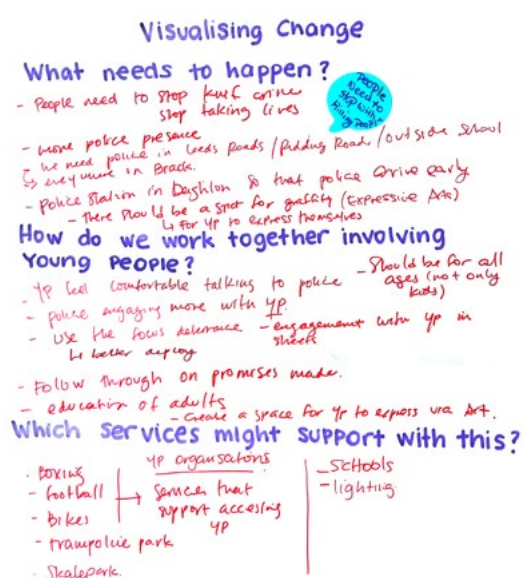 Visualising Change
What needs to happen?
- People need to stop knife crime
stop taking lives
People
Need to
Stop with
People
- more police presence
we need police in Leeds Roads / Road / outside school
everywhere in
- Police station in so that police arrive early
- There should be a spot for graffiti (Expressive Arts)
↳ For YP to express themselves
How do we work together involving
Young People?
- YP feel comfortable talking to police
- Should be for all
ages (not only
kids)
- police engaging more with YP.
- Use the focus deterrence
- engagement with YP in
streets
↳ better deploy
- Follow through on promises made.
- education of adults
- Create a space for YP to express via Art.
Which services might support with this?
- Boxing
- football
- Bikes
- trampoline park
- Skatepark.
YP organisations
→ services that
support accessing
YP
- Schools
- lighting